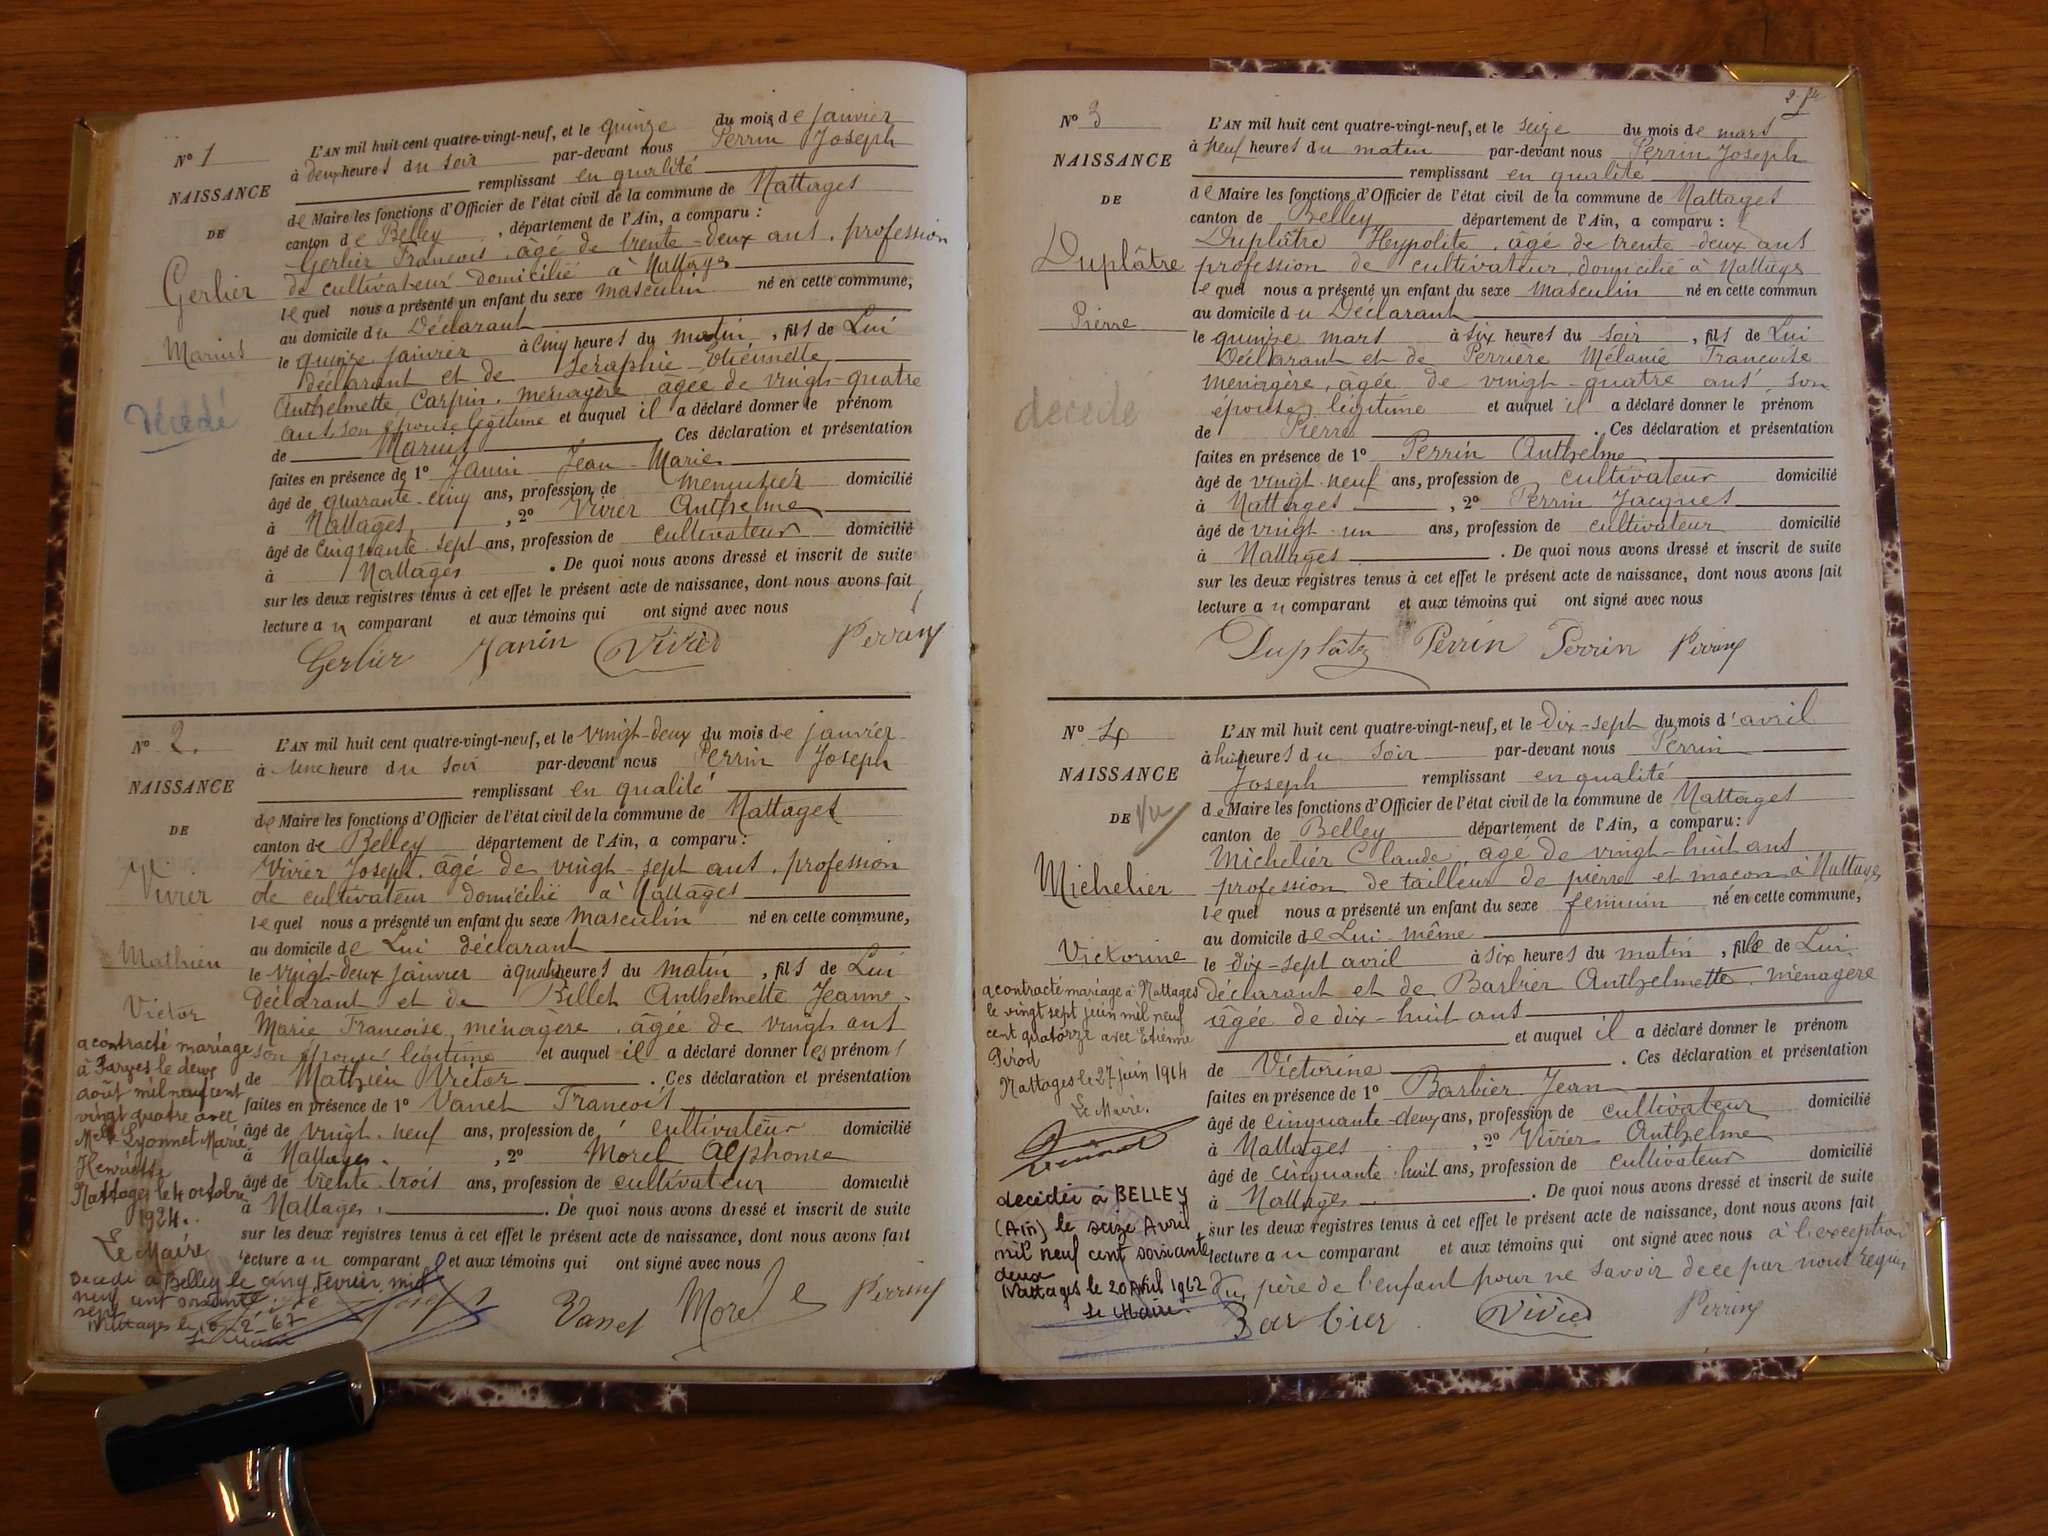 N° 1
NAISSANCE
DE
Gerlier
Marius
Décédé
L'AN mil huit cent quatre-vingt-neuf, et le quinze du mois de janvier
à deux heures du soir par-devant nous Perrin Joseph
remplissant en qualité
de Maire les fonctions d'Officier de l'état civil de la commune de Nattages
canton de Belley, département de l'Ain, a comparu :
Gerlier François, âgé de trente-deux ans, profession
de cultivateur domicilié à Nattages
lequel nous a présenté un enfant du sexe masculin né en cette commune,
au domicile du Déclarant
le quinze janvier à cinq heures du matin, fils de Lui
déclarant et de Séraphie Etiennette
Anthelmette Carpin, ménagère âgée de vingt-quatre
ans, son épouse légitime et auquel il a déclaré donner le prénom
de Marius. Ces déclaration et présentation
faites en présence de 1° Janin Jean-Marie
âgé de quarante-cinq ans, profession de menuisier domicilié
à Nattages, 2° Vivier Anthelme
âgé de cinquante-sept ans, profession de cultivateur domicilié
à Nattages. De quoi nous avons dressé et inscrit de suite
sur les deux registres tenus à cet effet le présent acte de naissance, dont nous avons fait
lecture au comparant et aux témoins qui ont signé avec nous
Gerlier Janin Vivier Perrin
N° 2.
NAISSANCE
DE
Vivier
Mathieu
Victor
a contracté mariage
à Farges le deux
août mil neuf cent
vingt quatre avec
Melle Lyonnet Marie
Henriette
Nattages le 4 octobre
1924.
Le Maire
Décédé à Belley le cinq Février mil
neuf cent soixante
sept
Nattages le 2-67
Le Maire
L'AN mil huit cent quatre-vingt-neuf, et le vingt-deux du mois de janvier
à une heure du soir par-devant nous Perrin Joseph
remplissant en qualité
de Maire les fonctions d'Officier de l'état civil de la commune de Nattages
canton de Belley département de l'Ain, a comparu :
Vivier Joseph, âgé de vingt-sept ans, profession
de cultivateur domicilié à Nattages
lequel nous a présenté un enfant du sexe masculin né en cette commune,
au domicile de Lui déclarant
le vingt-deux janvier à quatre heures du matin, fils de Lui
Déclarant et de Billet Anthelmette Jeanne
Marie Françoise, ménagère, âgée de vingt ans
son épouse légitime et auquel il a déclaré donner les prénoms
de Mathieu Victor. Ces déclaration et présentation
faites en présence de 1° Vanet François
âgé de vingt-neuf ans, profession de cultivateur domicilié
à Nattages, 2° Morel Alphonse
âgé de trente-trois ans, profession de cultivateur domicilié
à Nattages. De quoi nous avons dressé et inscrit de suite
sur les deux registres tenus à cet effet le présent acte de naissance, dont nous avons fait
lecture au comparant et aux témoins qui ont signé avec nous
Vanet Morel Perrin
N° 3
NAISSANCE
DE
Duplâtre
Pierre
décédé
L'AN mil huit cent quatre-vingt-neuf, et le seize du mois de mars
à neuf heures du matin par-devant nous Perrin Joseph
remplissant en qualité
de Maire les fonctions d'Officier de l'état civil de la commune de Nattages
canton de Belley département de l'Ain, a comparu :
Duplâtre Hypolite, âgé de trente-deux ans
profession de cultivateur, domicilié à Nattages
lequel nous a présenté un enfant du sexe masculin né en cette commun
au domicile du Déclarant
le quinze mars à six heures du soir, fils de Lui
Déclarant et de Perrière Mélanie Françoise
ménagère, âgée de vingt-quatre ans, son
épouse légitime et auquel il a déclaré donner le prénom
de Pierre. Ces déclaration et présentation
faites en présence de 1° Perrin Anthelme
âgé de vingt-neuf ans, profession de cultivateur domicilié
à Nattages, 2° Perrin Jacques
âgé de vingt-un ans, profession de cultivateur domicilié
à Nattages. De quoi nous avons dressé et inscrit de suite
sur les deux registres tenus à cet effet le présent acte de naissance, dont nous avons fait
lecture au comparant et aux témoins qui ont signé avec nous
Duplâtre Perrin Perrin Perrin
N° 4
NAISSANCE
DE
Vu
Michelier
Victorine
a contracté mariage à Nattages
le vingt sept juin mil neuf
cent quatorze avec Etienne
Pirod
Nattages le 27 juin 1914
Le Maire.
décédée à BELLEY
(Ain) le seize Avril
mil neuf cent soixante
deux
Nattages le 20 Avril 1962
Le Maire.
L'AN mil huit cent quatre-vingt-neuf, et le dix-sept du mois d'avril
à huit heures du soir par-devant nous Perrin
Joseph remplissant en qualité
de Maire les fonctions d'Officier de l'état civil de la commune de Nattages
canton de Belley département de l'Ain, a comparu :
Michelier Claude, âgé de vingt-huit ans
profession de tailleur de pierre et maçon à Nattages
lequel nous a présenté un enfant du sexe féminin né en cette commune,
au domicile de Lui-même
le dix-sept avril à six heures du matin, fille de Lui
déclarant et de Barbier Anthelmette, ménagère
âgée de dix-huit ans
et auquel il a déclaré donner le prénom
de Victorine. Ces déclaration et présentation
faites en présence de 1° Barbier Jean
âgé de cinquante-deux ans, profession de cultivateur domicilié
à Nattages, 2° Vivier Anthelme
âgé de cinquante-huit ans, profession de cultivateur domicilié
à Nattages. De quoi nous avons dressé et inscrit de suite
sur les deux registres tenus à cet effet le présent acte de naissance, dont nous avons fait
lecture au comparant et aux témoins qui ont signé avec nous à l'exception
du père de l'enfant pour ne savoir de ce par nous requis
Barbier Vivier Perrin